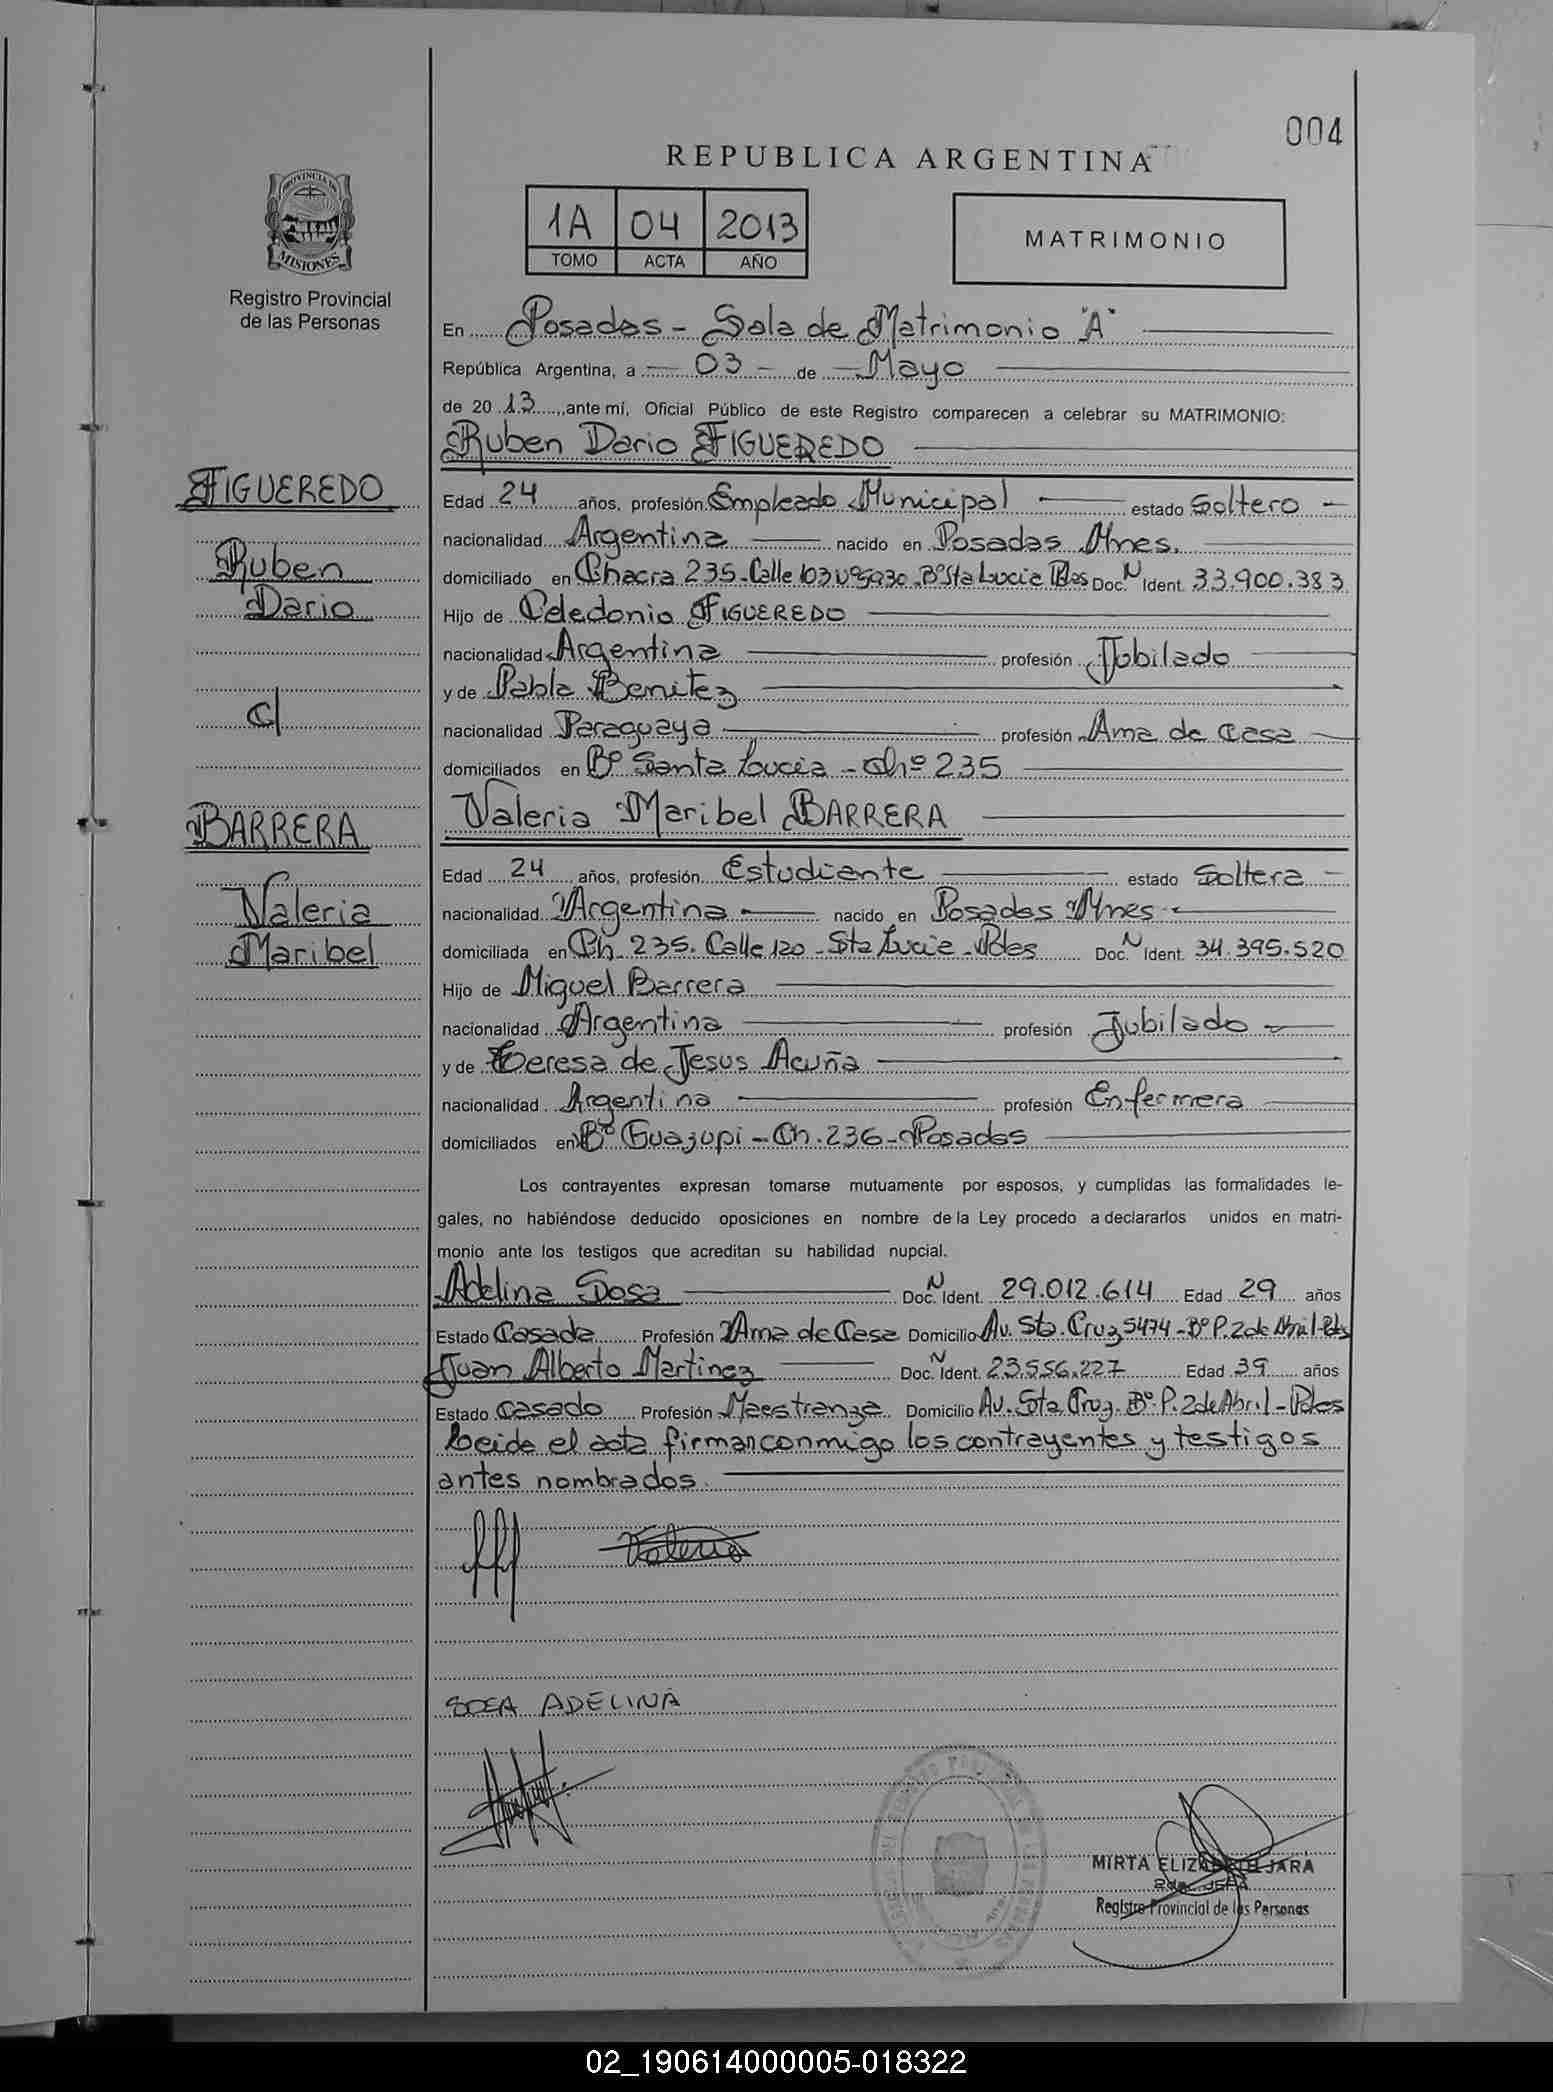 004
REPUBLICA ARGENTINA
PROVINCIA DE
MISIONES
Registro Provincial
de las Personas
1A 04 2013
TOMO ACTA AÑO
MATRIMONIO
En Posadas - Sala de Matrimonio "A"
República Argentina, a 03 de Mayo
de 2013, ante mí, Oficial Público de este Registro comparecen a celebrar su MATRIMONIO:
Ruben Dario FIGUEREDO
FIGUEREDO
Ruben
Dario
c/
BARRERA
Valeria
Maribel
Edad 24 años, profesión Empleado Municipal estado Soltero
nacionalidad Argentina nacido en Posadas Mnes.
domiciliado en Chacra 235 - Calle 103 Bº Sta Lucia Pdas Doc. N Ident. 33.900.383
Hijo de Celedonio FIGUEREDO
nacionalidad Argentina profesión Jubilado
y de Pabla Benitez
nacionalidad Paraguaya profesión Ama de Casa
domiciliados en Bº Santa Lucia - Chº 235
Valeria Maribel BARRERA
Edad 24 años, profesión Estudiante estado Soltera
nacionalidad Argentina nacido en Posadas Mnes
domiciliada en Ch. 235. Calle 120 - Sta Lucia - Pdas Doc. N Ident. 34.395.520
Hijo de Miguel Barrera
nacionalidad Argentina profesión Jubilado
y de Teresa de Jesus Acuña
nacionalidad Argentina profesión Enfermera
domiciliados en Bº Guazupi - Ch. 236 - Posadas
Los contrayentes expresan tomarse mutuamente por esposos, y cumplidas las formalidades le-
gales, no habiéndose deducido oposiciones en nombre de la Ley procedo a declararlos unidos en matri-
monio ante los testigos que acreditan su habilidad nupcial.
Adelina Sosa Doc. N Ident. 29.012.614 Edad 29 años
Estado Casada Profesión Ama de Casa Domicilio Av. Sta. Cruz 5474 - Bº P. 2 de Abril - Pdas
Juan Alberto Martinez Doc. N Ident. 23.556.227 Edad 39 años
Estado Casado Profesión Maestranza Domicilio Av. Sta Cruz. Bº P. 2 de Abril - Pdas
Leida el acta firman conmigo los contrayentes y testigos
antes nombrados.
Valeria
SOSA ADELINA
MIRTA ELIZABETH JARA
Registro Provincial de las Personas
02_190614000005-018322